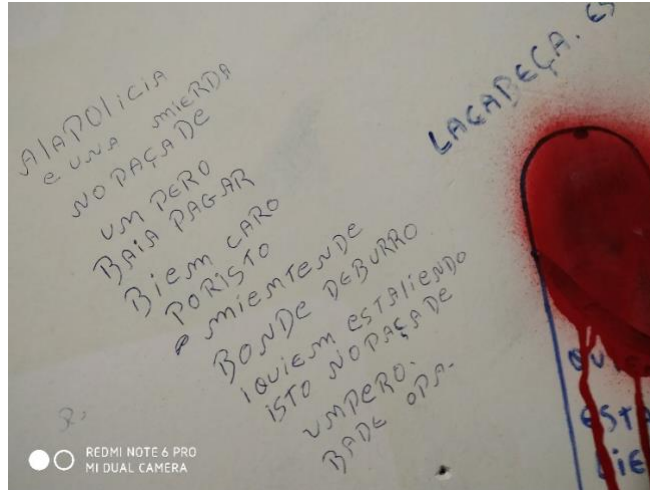 AlAPOliCiA
e UNA MIERDA
NO PAÇADE
UM PERO
BAiA PAGAR
BiEM CARO
PORISTO
MiEMTENDE
BONDE DEBURRO
iQUiEM ESTAliENDO
iSTO NO PAÇADE
UMPERO.
BADE OPA.
LACABEÇA. ES
EST
REDMI NOTE 6 PRO
MI DUAL CAMERA